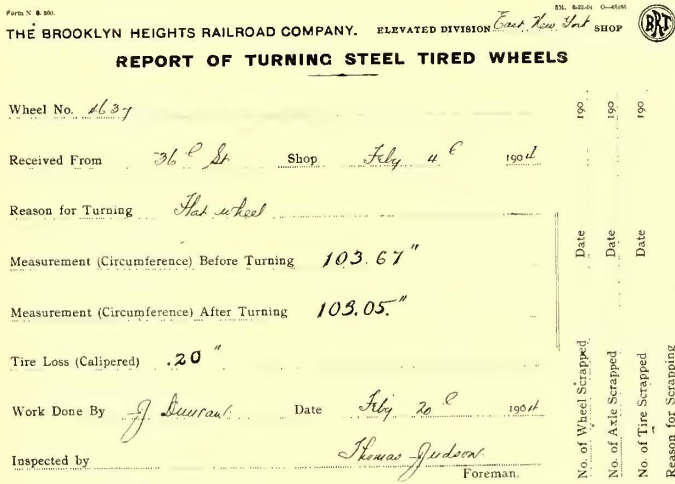 Form N S. 500.
5M. 5-23-04 O—
THE BROOKLYN HEIGHTS RAILROAD COMPANY. ELEVATED DIVISION East New York SHOP BRT
REPORT OF TURNING STEEL TIRED WHEELS
Wheel No. 4637
Received From 36th St Shop Feby 4th 1904
Reason for Turning Flat wheel
Measurement (Circumference) Before Turning 103.67"
Measurement (Circumference) After Turning 103.05."
Tire Loss (Calipered) .20"
Work Done By J. Date Feby 20th 1904
Inspected by Thomas Judson
Foreman.
No. of Wheel Scrapped Date 190
No. of Axle Scrapped Date 190
No. of Tire Scrapped Date 190
Reason for Scrapping